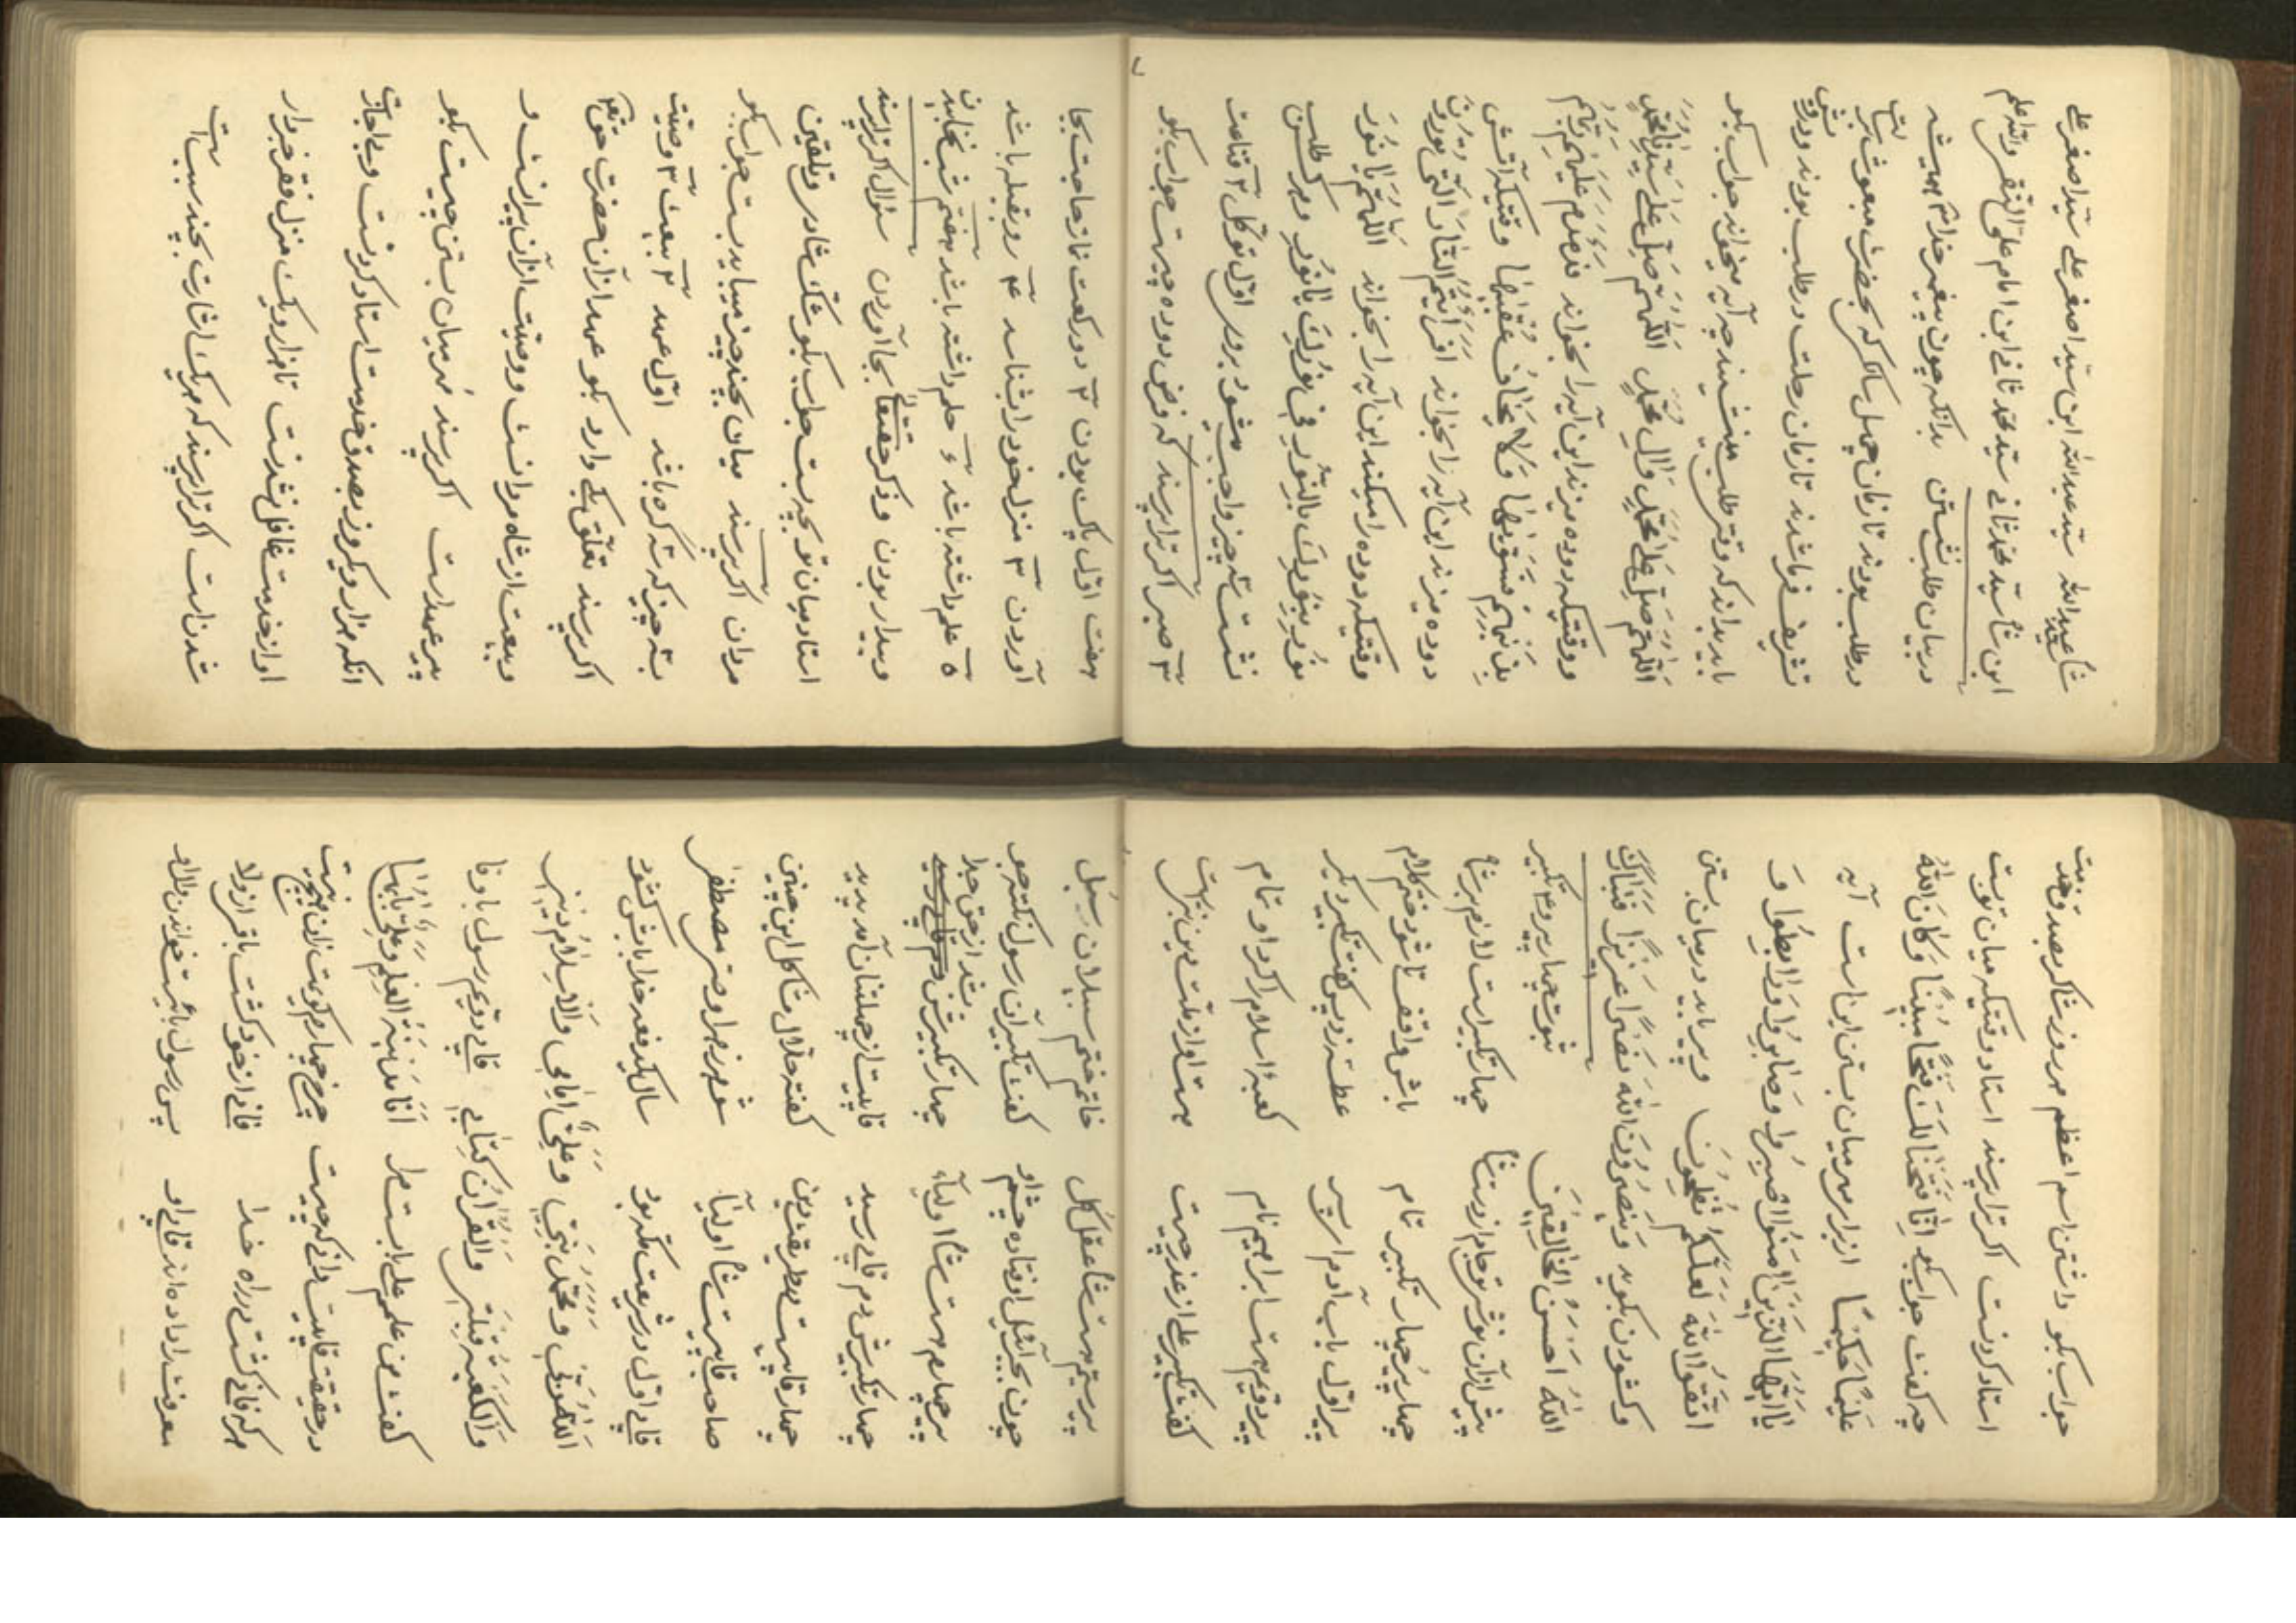 شاه عبیدالله سید عبدالله ابن سید اصغر علی سید اصغر علی
ابن شاه سید محمد ثانی سید محمد ثانی ابن امام علی النقی والله اعلم
در بیان طلب نشستن بدانکه چون پیغمبر خدا هم همیشه
در طلب بودند تا زمان چهل سالگی که بحضرت مبعوث
تشریف فرما شدند تا زمان رحلت در طلب بودند و درویش
باید بداند که وقتی طلب مینشیند چه آیه میخواند جواب بگو
اللّهم صلّ علی محمّد وآل محمّد اللّهم صلّ علی سیّدنا محمّد
و وقتیکه دوده میزند این آیه را بخواند فدمدم علیهم ربّهم
بذنبهم فسوّیها ولا یخاف عقبیها وقتیکه آتش
دوده میزند این آیه را بخواند افرأیتم النّار الّتی تورون
وقتیکه دوده را میکشد این آیه را بخواند اللّهم یا نور
نور بنورک بالنّور فی نورک یا نور و هر کس طلب
نشست سه چیز واجب میشود بروی اوّل توکل ۲ قناعت
۳ صبر اگر ترا پرسند که فرض دوده چیست جواب بگو
هفت اوّل پاک بودن ۲ دو رکعت نماز حاجت بجا
آوردن ۳ منزل خود را شناسد ۴ رو بقبله باشد
۵ علم داشته باشد ۶ حلم داشته باشد هفتم شب نخوابیدن
و بیدار بودن و ذکر حقتعالی بجا آوردن سئوال اگر ترا پرسند
استاد میان تو بچه بست جواب بگو شکّ شادر و تلقین
مردان اگر پرسند میان بچند چیز میباید بست جواب بگو
بسه چیز که سه گره باشد اوّل عهد ۲ بیعت ۳ وصیّت
اگر پرسند تعلّق بکی دارد بگو عهد از آن حضرت حق تعم
و بیعت از شاه مردانست و وصیّت از آن پیرانست و
پیر عهد است اگر پرسند مهر میان بستن چیست بگو
انکه هزار و یکروز بصدق خدمت استاد کردنست و بی اجازت
او از خدمت غافل نشدنست تا هزار و یک منزل فقر خبردار
شدنست اگر ترا پرسند که هر یک اشارت بچند سبب است
جواب بگو داشتن اسم اعظم هر روز شاکر بصدق خدمت
استاد کردنست اگر ترا پرسند استاد وقتیکه میان تو بست
چه گفت جواب بگو انّا فتحنا لک فتحا مبینا وکان الله
علیما حکیما از برای مهر میان بستن این است آیه
یا ایّها الّذین امنوا اصبروا وصابروا ورابطوا و
اتّقوا الله لعلّکم تفلحون و پیر باید در میان بستن
و گشودن بگوید وینصرک الله نصرا عزیزا فتبارک
الله احسن الخالقین ثبوت چهار پیر و ۴ تکبیر
پیش از آن نوشی تو جام از دست ما چهار تکبیر است لازم بر شما
چهار پیر چهار تکبیر تمام باشی واقف تا شود ختم کلام
پیر اوّل باب آدم ای پسر عطسه زد پس گفت تکبیر دیگر
پیر دویم هست ابراهیم نام کعبهٔ اسلام را کرد او تمام
گفت تکبیر علی از عذر چیست هست او از ملّت دین نیکیت
پیر سیّم هست شاه عقل کل خاتم ختم سبیلان رسل
چون بجبرئیل اوفتاده چشم او گفت تکبیر آن رسول نکته جو
پیر چهارم هست شاه اولیاء چهار تکبیرش شد از حق جدا
چهار تکبیرش دم فانی رسید فانیست از چلتنان آمد پدید
چهار فانیست در طریقت دین گفته جلّال مشاکل این چنین
صاحب فانیست شاه اولیا شوهر زهرا وصی مصطفی
فانی اوّل در شریعت نکته بود سال یکدفعه خدا بابش گشود
اللهم ربّی ومحمّد نبیّی وعلیّ امامی والاسلام دینی
والکعبه قبلتی والقرآن کتابی فانی دویم رسول باوفا
گفت من علمم علی بابست مرا انا مدینة العلم وعلیّ بابها
در حقیقت فانیست دانی که چیست چرخ چهارم گویمت
هر که فانی گشت در راه خدا فانی از خود گشت باقی از ولا
معرفت را داده اند فانی او پس رسول باشیت خواندن ملا او